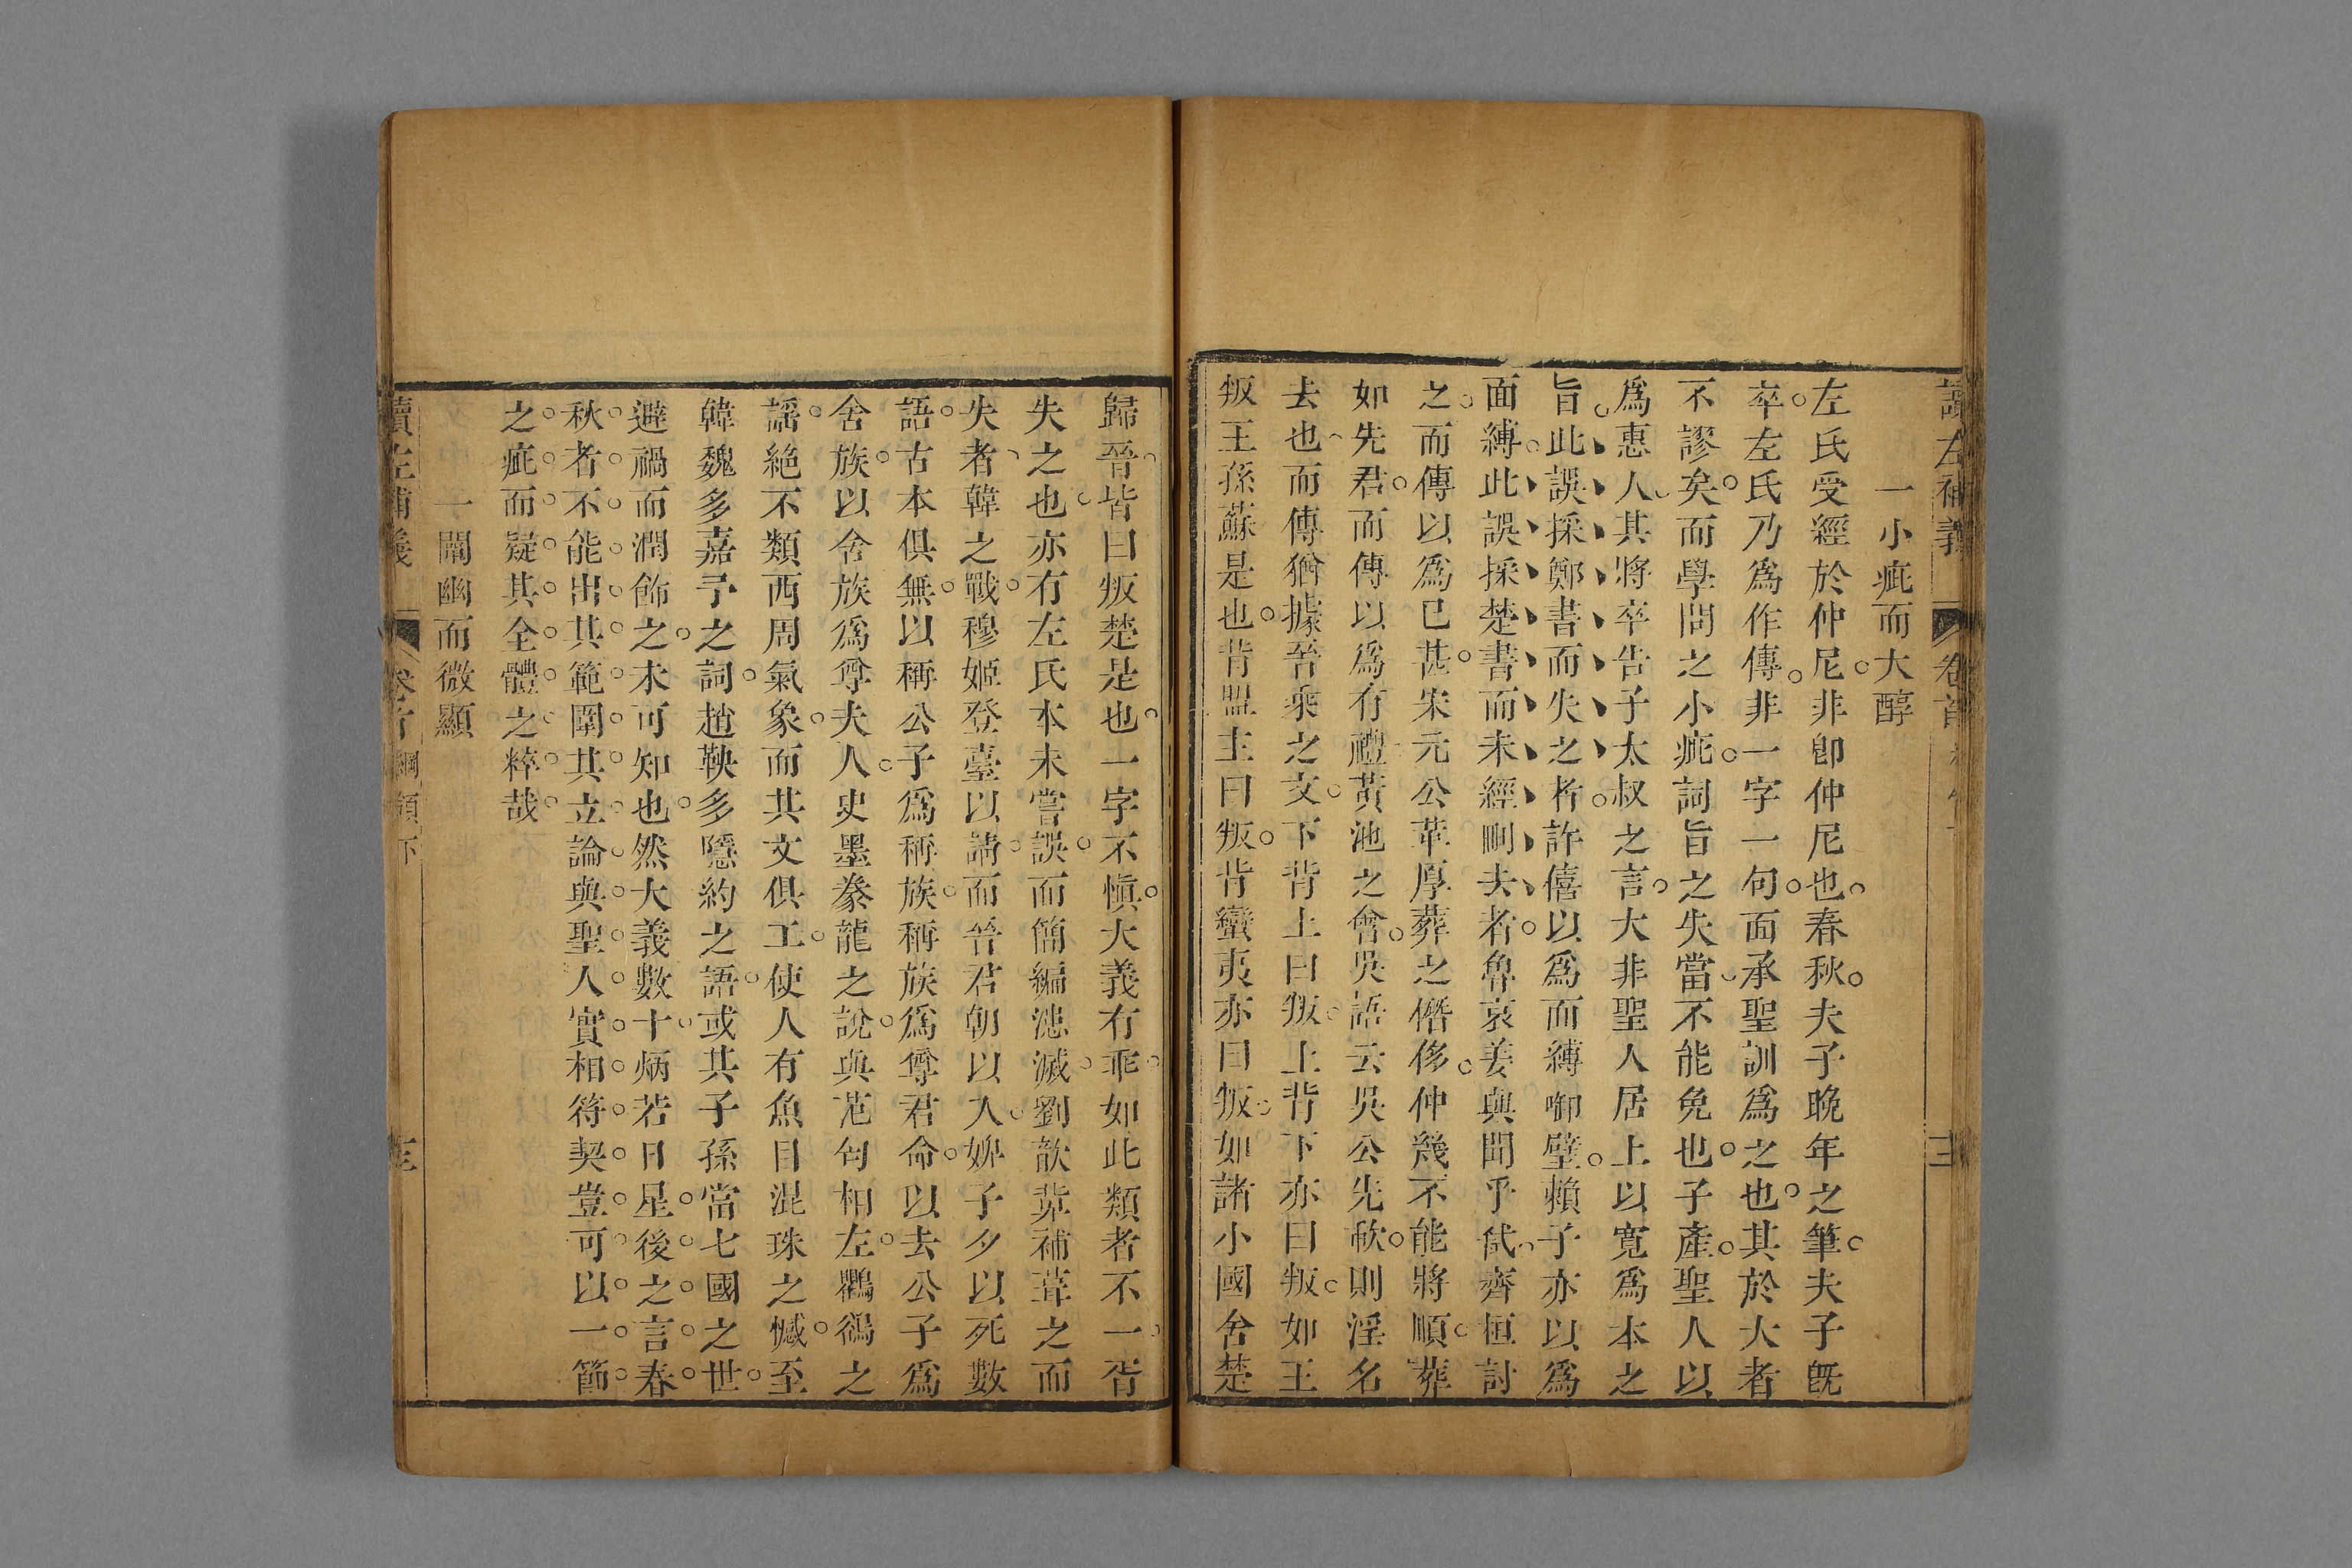 讀左補義
卷首
一小疵而大醇
左氏受經於仲尼非卽仲尼也春秋夫子晚年之筆夫子旣
卒左氏乃爲作傳非一字一句面承聖訓爲之也其於大者
不謬矣而學問之小疵詞旨之失當不能免也子產聖人以
爲惠人其將卒告子太叔之言大非聖人居上以寬爲本之
旨此誤採鄭書而失之者許僖以爲而縛啣璧賴子亦以爲
面縛此誤採楚書而未經刪去者魯哀姜與聞乎弒齊桓討
之而傳以爲已甚宋元公革厚葬之僭侈仲幾不能將順葬
如先君而傳以爲有禮黃池之會吳語云吳公先歃則淫名
去也而傳猶據晉乘之文下背上曰叛上背下亦曰叛如王
叛王孫蘇是也背盟主曰叛背蠻夷亦曰叛如諸小國舍楚
歸晉皆曰叛楚是也一字不愼大義有乖如此類者不一胥
失之也亦有左氏本未嘗誤而簡編漶滅劉歆輩補葺之而
失者韓之戰穆姬登臺以請而晉君朝以入婢子夕以死數
語古本俱無以稱公子爲稱族稱族爲尊君命以去公子爲
舍族以舍族爲尊夫人史墨豢龍之說與范匄相左鸜鵒之
謡絕不類西周氣象而其文俱工使人有魚目混珠之憾至
韓魏多嘉予之詞趙鞅多隱約之語或其子孫當七國之世
避禍而潤飾之未可知也然大義數十炳若日星後之言春
秋者不能出其範圍其立論與聖人實相符契豈可以一節
之疵而疑其全體之粹哉
一闡幽而微顯
讀左補義
卷首 綱領下